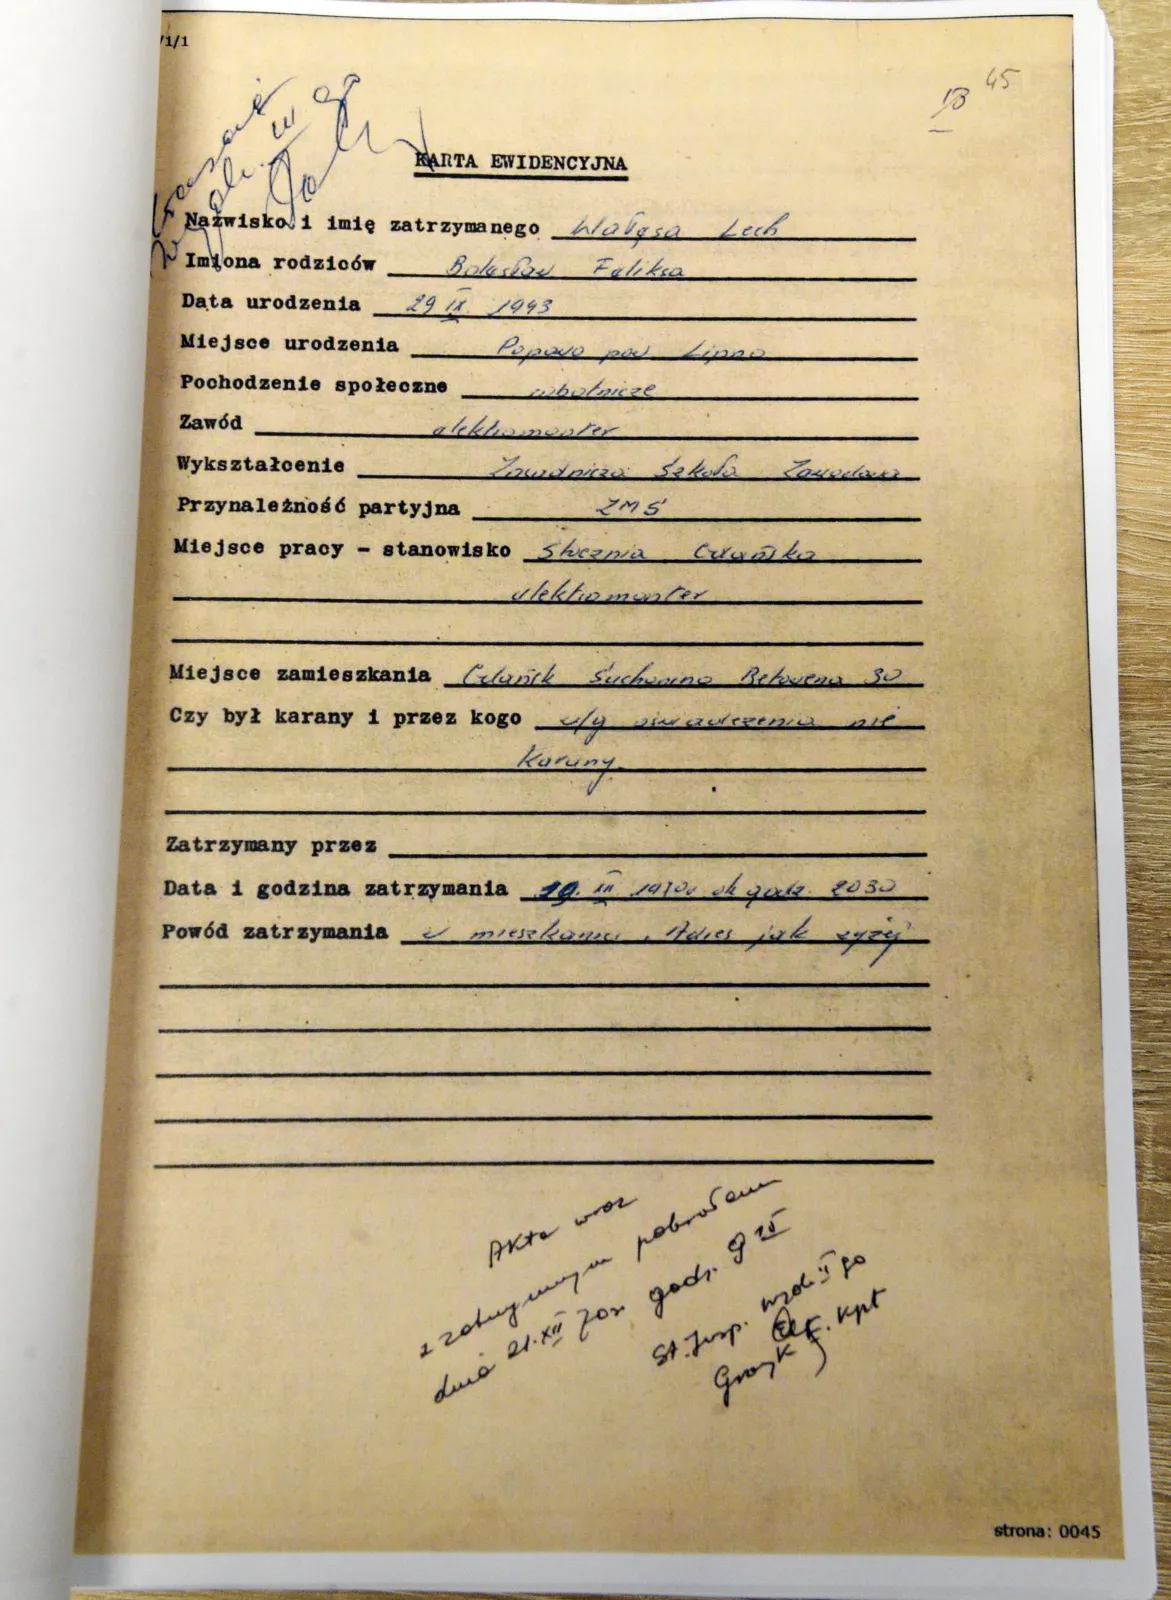 /1/1
45
KARTA EWIDENCYJNA
Nazwisko i imię zatrzymanego Wałęsa Lech
Imiona rodziców Bolesław Feliksa
Data urodzenia 29 IX. 1943
Miejsce urodzenia Popowo pow. Lipno
Pochodzenie społeczne robotnicze
Zawód elektromonter
Wykształcenie Zasadnicza Szkoła Zawodowa
Przynależność partyjna ZMS
Miejsce pracy - stanowisko Stocznia Gdańska
elektromonter
Miejsce zamieszkania Gdańsk Suchanino Betovena 30
Czy był karany i przez kogo w/g oświadczenia nie
Karany.
Zatrzymany przez
Data i godzina zatrzymania 19. XII 1970r ok godz. 2030
Powód zatrzymania w mieszkaniu. Adres jak wyżej
Akta wraz
z zatrzymanym pobrałem
dnia 21.XII 70r godz. 9
St. Insp. II go
kpt
strona: 0045